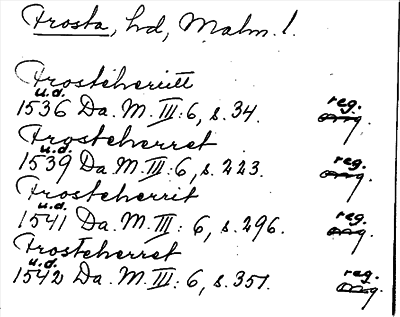 Frosta, hd, Malm. l.
Frosteheriitt
u.d. reg.
1536 Da. M. III: 6, s. 34. orig.
Frosteherret
u.d. reg.
1539 Da M. III: 6, s. 223. orig.
Frosteherrit
u.d. reg.
1541 Da. M. III: 6, s. 296. orig.
Frosteherret
u.d. reg.
1542 Da. M. III: 6, s. 351. orig.